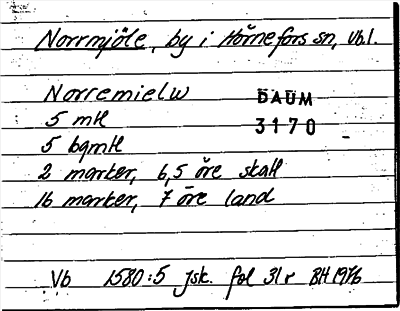 Norrmjöle, by i Hörnefors sn, Vb.l.
Norremielw
DAUM
5 mtl
3170
5 bqmtl
2 marker, 6,5 öre skatt
16 marker, 7 öre land
Vb 1580:5 jsk. fol 31r BH 1976